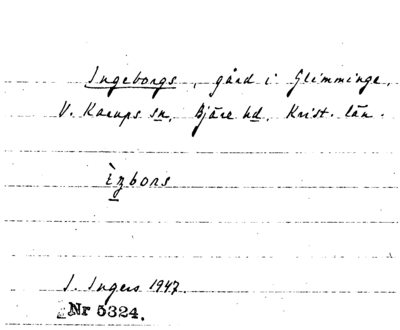 Ingeborgs, gård i Glimminge,
V. Karups sn, Bjäre hd, Krist. län.
I. Ingers 1947.
Nr 5324.